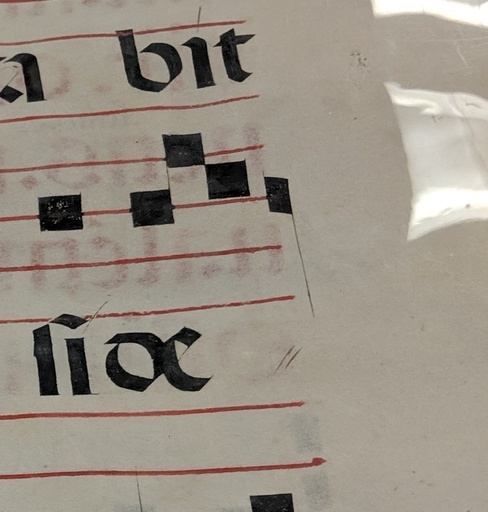 a bit
liæ